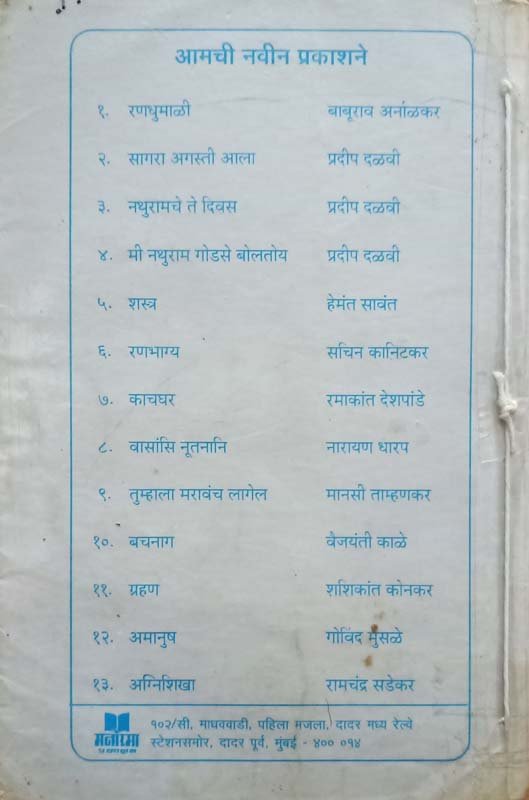 आमची नवीन प्रकाशने
१. रणधुमाळी बाबूराव अर्नाळकर
२. सागरा अगस्ती आला प्रदीप दळवी
३. नथुरामचे ते दिवस प्रदीप दळवी
४. मी नथुराम गोडसे बोलतोय प्रदीप दळवी
५. शस्त्र हेमंत सावंत
६. रणभाग्य सचिन कानिटकर
७. काचघर रमाकांत देशपांडे
८. वासांसि नूतनानि नारायण धारप
९. तुम्हाला मरावंच लागेल मानसी ताम्हणकर
१०. बचनाग वैजयंती काळे
११. ग्रहण शशिकांत कोनकर
१२. अमानुष गोविंद मुसळे
१३. अग्निशिखा रामचंद्र सडेकर
मनोरमा
प्रकाशन
१०२/सी, माधववाडी, पहिला मजला, दादर मध्य रेल्वे
स्टेशनसमोर, दादर पूर्व, मुंबई - ४०० ०१४